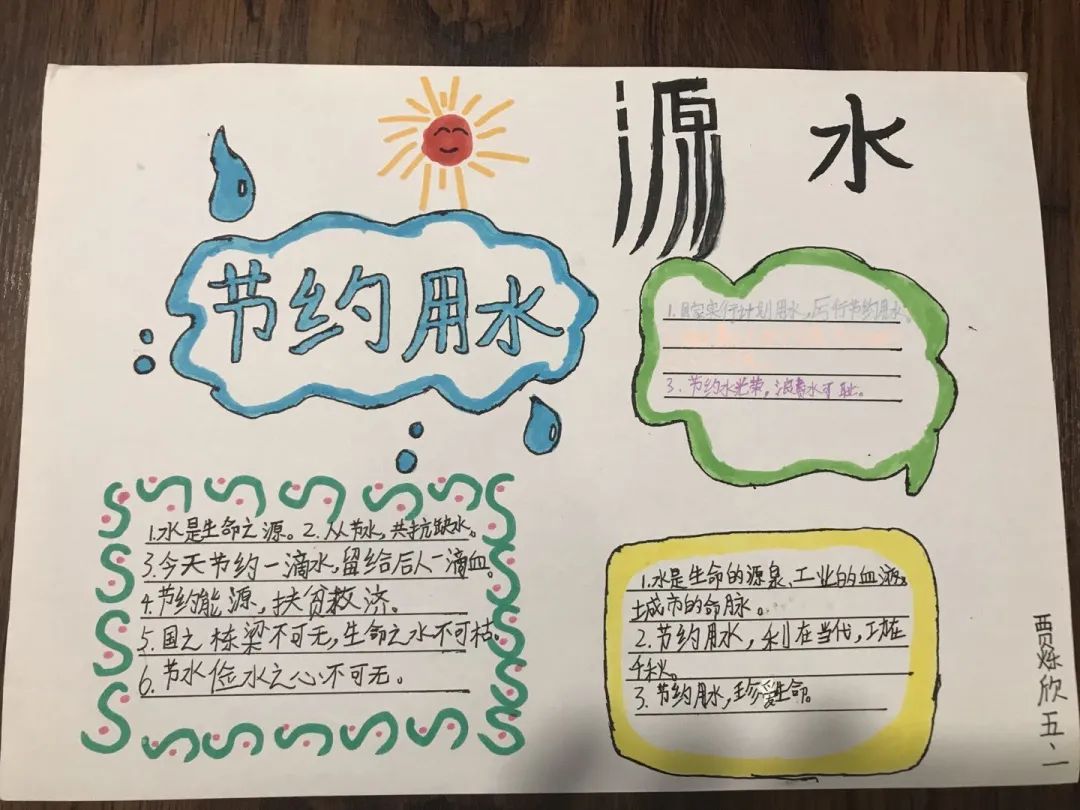 源 水
节约用水
1.国家实行计划用水,厉行节约用水。
3.节约水光荣,浪费水可耻。
1.水是生命之源。2.从节水,共抗缺水。
3.今天节约一滴水,留给后人一滴血。
4.节约能源,扶贫救济。
5.国之栋梁不可无,生命之水不可枯。
6.节水俭水之心不可无。
1.水是生命的源泉、工业的血液。
城市的命脉。
2.节约用水,利在当代,功在
千秋。
3.节约用水,珍爱生命。
贾烁欣 五、一